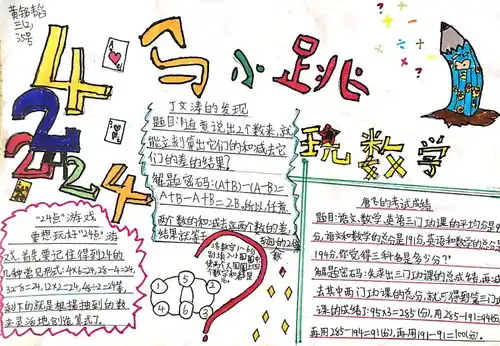 黄铭韬
三(2)
35号
马小跳
玩数学
4
2
2
24
A
2
丁文涛的发现
题目:谁者说出2个数来,就
能立刻算出它们的和减去它
们的差的结果?
解题密码:(A+B)-(A-B)=
A+B-A+B=2B,所以任意
两个数的和减去这两个数的差,
结果就等于
"24点"游戏
要想玩好"24点"游
戏,首先要记住得到24的
几种常见形式:4×6=24,28-4=24,
3×8=24,12×2=24,
剩下的就是根据抽到的数
来灵活地创造算式了。
将数字1~6分
别填入小圆圈中
使两个大圆圈上
1
5
3
6
4
2
唐飞的考试成绩
题目:语文、数学、英语三门功课的平均分是95
分,语文和数学的总分是191分,英语和数学的总分是
194分,你觉得三科各是多少分?
解题密码:先求出三门功课的总成绩,再减
去其中两门功课的总分,就可得到第三门功
课的成绩了:95×3=285(分),用285-191=94(分),
再用285-194=91(分),再用191-91=100(分).